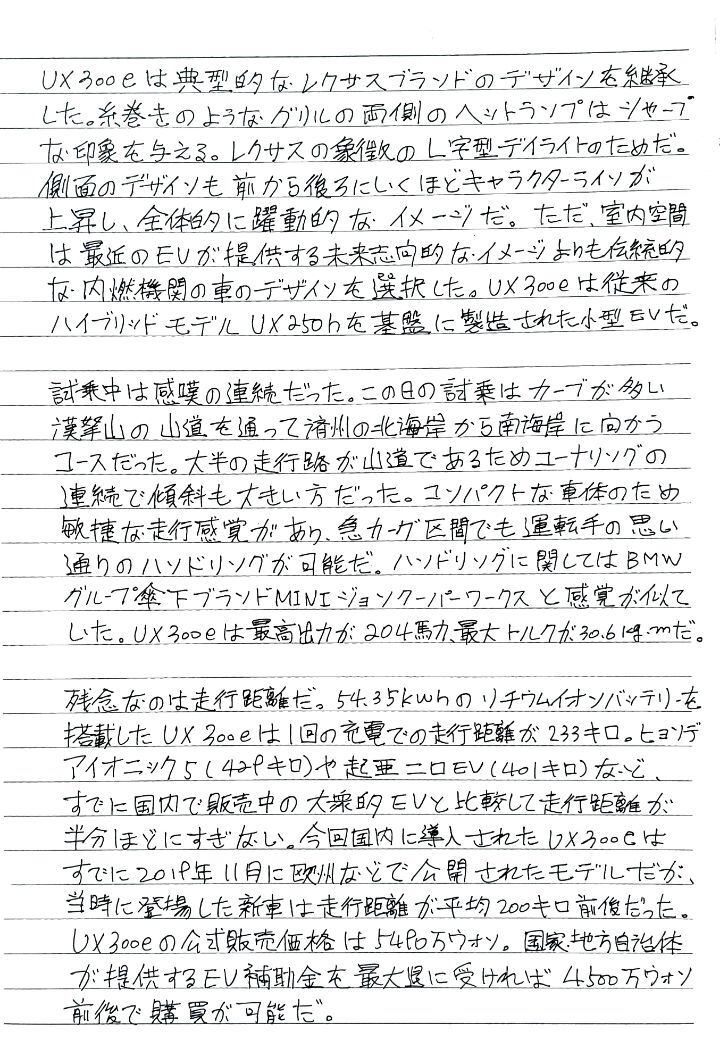 UX300eは典型的なレクサスブランドのデザインを継承
した。糸巻きのようなグリルの両側のヘットランプはシャープ
な印象を与える。レクサスの象徴のL字型デイライトのためだ。
側面のデザインも前から後ろにいくほどキャラクターラインが
上昇し、全体的に躍動的なイメージだ。ただ、室内空間
は最近のEVが提供する未来志向的なイメージよりも伝統的
な内燃機関の車のデザインを選択した。UX300eは従来の
ハイブリッドモデルUX250hを基盤に製造された小型EVだ。
試乗中は感嘆の連続だった。この日の試乗はカーブが多い
漢拏山の山道を通って済州の北海岸から南海岸に向かう
コースだった。大半の走行路が山道であるためコーナリングの
連続で傾斜も大きい方だった。コンパクトな車体のため
敏捷な走行感覚があり、急カーグ区間でも運転手の思い
通りのハンドリングが可能だ。ハンドリングに関してはBMW
グループ傘下ブランドMINIジョンクーパーワークスと感覚が似て
いた。UX300eは最高出力が204馬力、最大トルクが30.6kg·mだ。
残念なのは走行距離だ。54.35kWhのリチウムイオンバッテリーを
搭載したUX300eは1回の充電での走行距離が233キロ。ヒョンデ
アイオニック5(429キロ)や起亜ニロEV(401キロ)など、
すでに国内で販売中の大衆的EVと比較して走行距離が
半分ほどにすぎない。今回国内に導入されたUX300eは
すでに2019年11月に欧州などで公開されたモデルだが、
当時に登場した新車は走行距離が平均200キロ前後だった。
UX300eの公式販売価格は5490万ウォン。国家·地方自治体
が提供するEV補助金を最大退に受ければ4500万ウォン
前後で購買が可能だ。